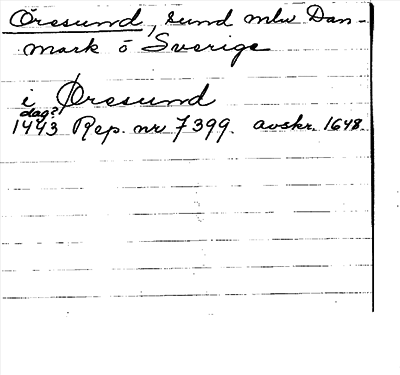 Öresund, sund mlw Dan-
mark o Sverige
i Øresund
dag?
1443 Rep. nr 7399. avskr. 1648.